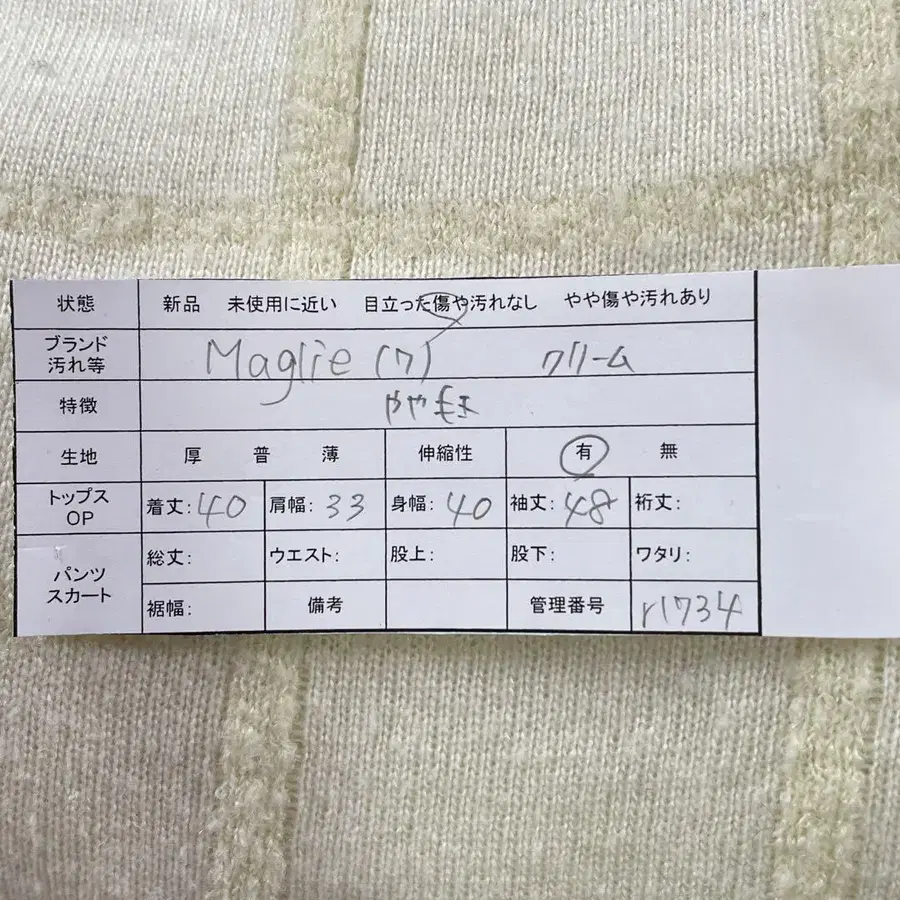 状態 新品 未使用に近い 目立った傷や汚れなし やや傷や汚れあり
ブランド 汚れ等 Maglie (ワ) クリーム
特徴 やや毛玉
生地 厚 普 薄 伸縮性 有 無
トップス OP 着丈:40 肩幅:33 身幅:40 袖丈:48 裄丈:
パンツ スカート 総丈: ウエスト: 股上: 股下: ワタリ:
裾幅: 備考 管理番号 r1734